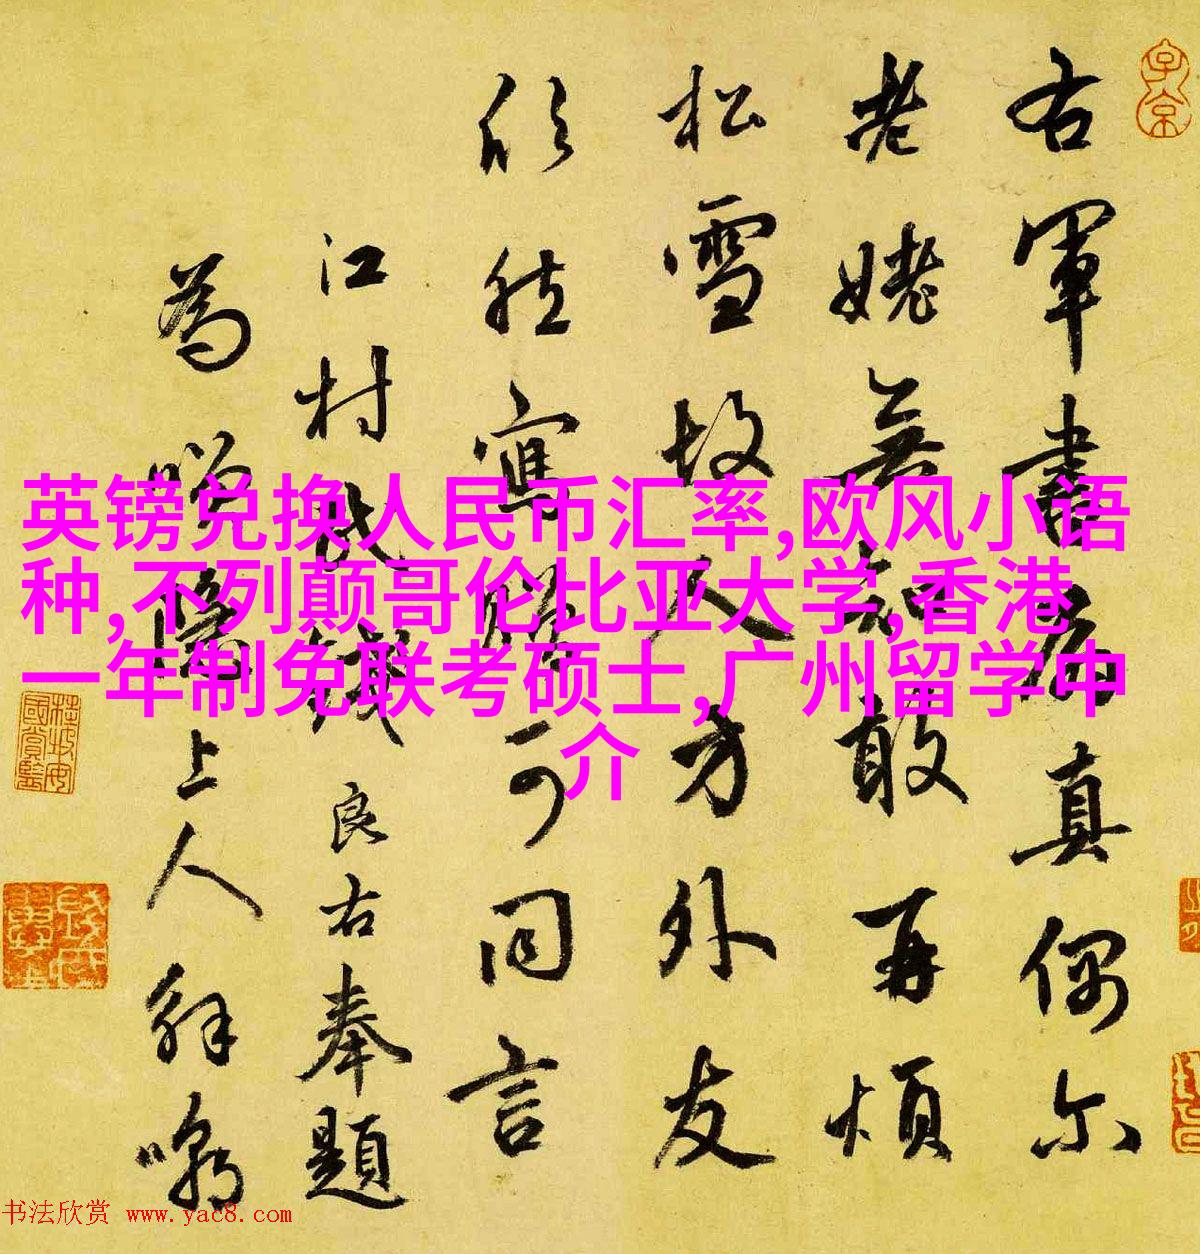 右軍書扇真偶尔
老姥無知敢再煩
松雪故人方外友
欣然寫贈可同言
江村民錢良右奉題
上人
英镑兑换人民币汇率,欧风小语
种,不列颠哥伦比亚大学,香港
一年制免联考硕士,广州留学中
介
书法欣赏 www.yac8.com